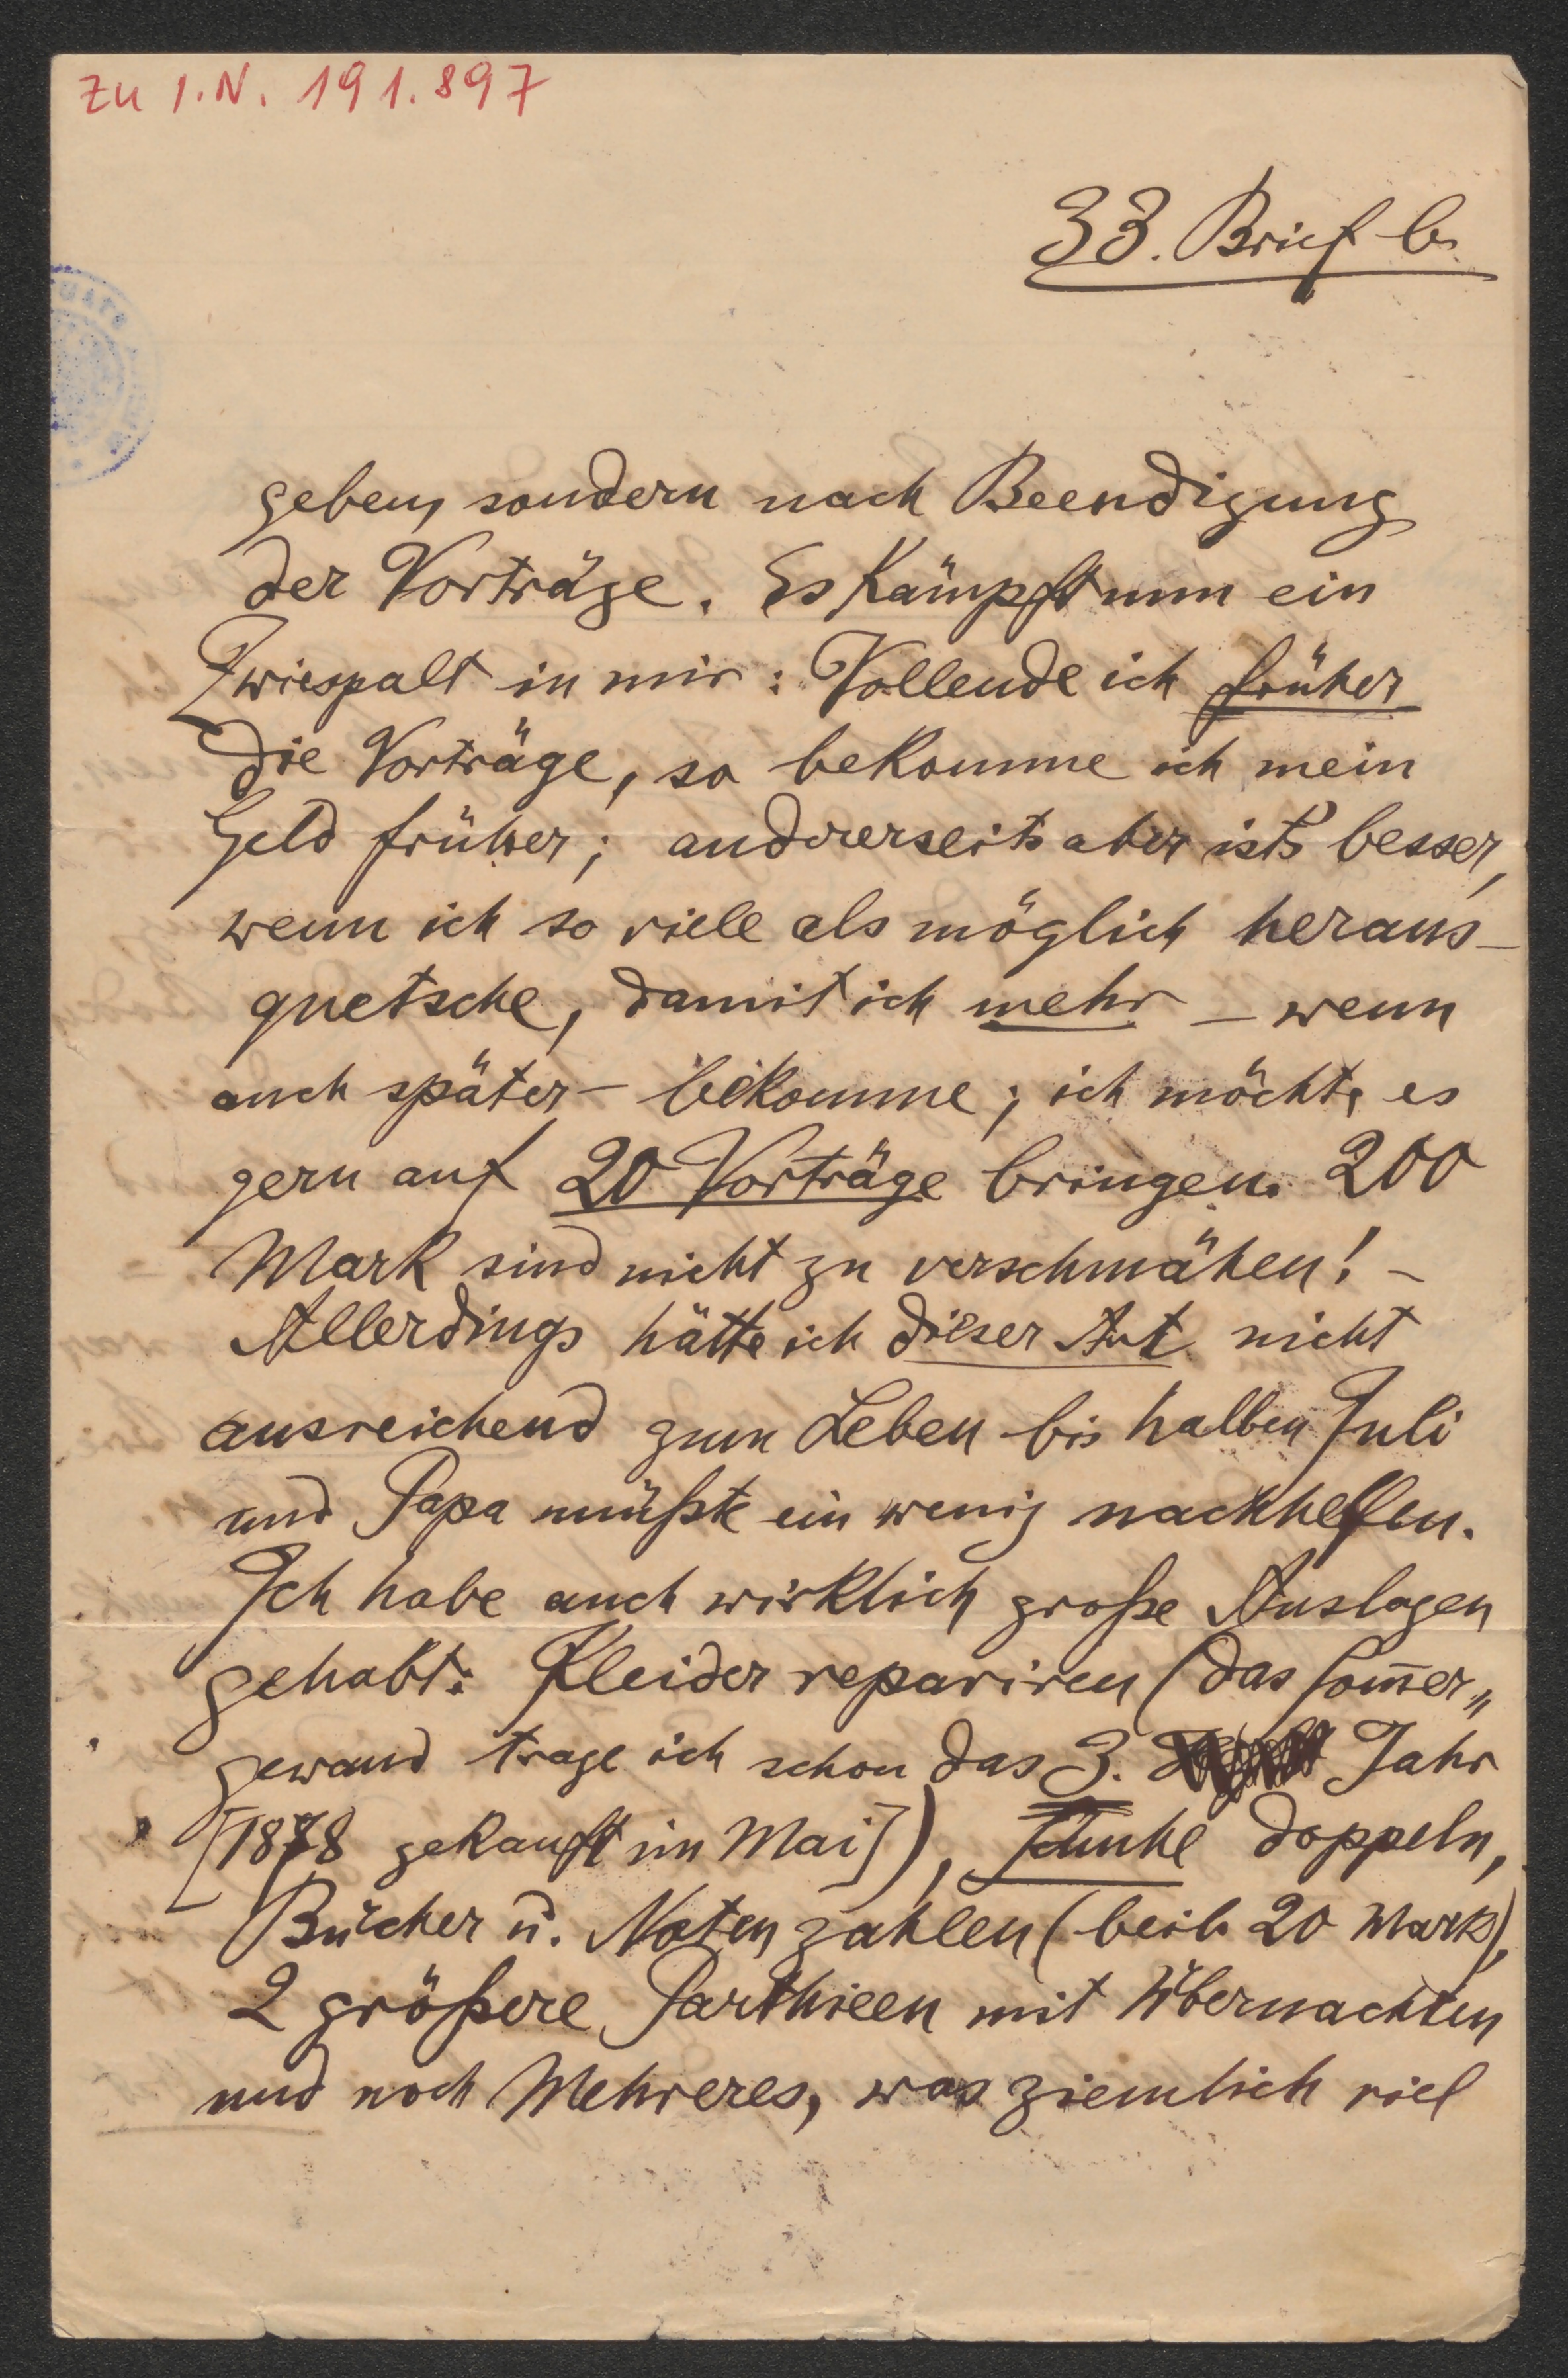 Zu I.N. 191.897
33. Brief b.
geben, sondern nach Beendigung
der Vorträge. Es kämpft nun ein
Zwiespalt in mir: Vollende ich früher
die Vorträge, so bekomme ich mein
Geld früher; andererseits aber ists besser,
wenn ich so viele als möglich heraus-
quetsche, damit ich mehr – wenn
auch später – bekomme; ich möchte es
gern auf 20 Vorträge bringen. 200
Mark sind nicht zu verschmähen! –
Allerdings hätte ich dieser Art nicht
ausreichend zum Leben bis halben Juli
und Papa müßte ein wenig nachhelfen.
Ich habe auch wirklich große Auslagen
gehabt: Kleider repariren (das Som̅er„
gewand trage ich schon das 3. Jahr
[1878 gekauft im Mai]), Schuhe doppeln,
Bücher u. Noten zahlen (beil. 20 Mark),
2 größere Parthieen mit Übernachten
und noch Mehreres, was ziemlich viel